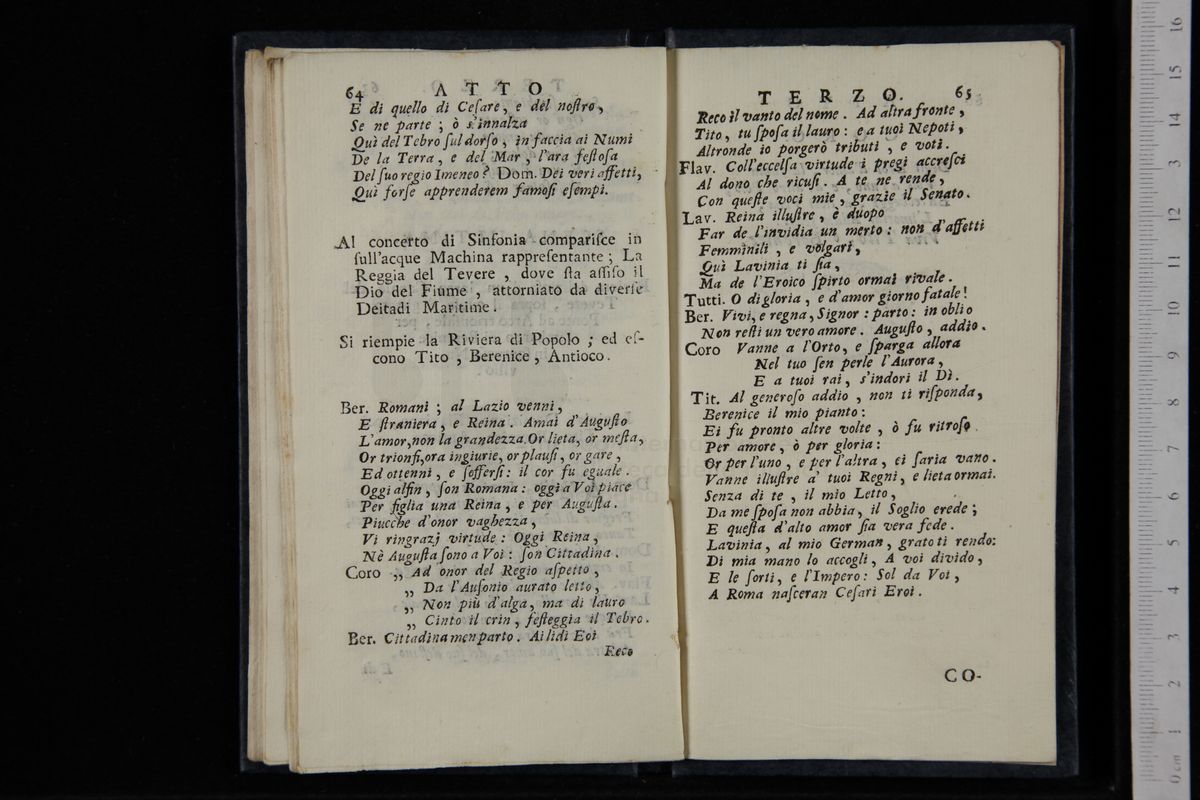 64 ATTO
E di quello di Ceſare, e del noſtro,
Se ne parte ; ò s'innalza
Quì del Tebro ſul dorſo , in faccia ai Numi
De la Terra, e del Mar , l'ara feſtoſa
Del ſuo regio Imeneo? Dom. Dei veri affetti,
Quì forſe apprenderem famoſi eſempi.
Al concerto di Sinfonia compariſce in
ſull'acque Machina rappreſentante ; La
Reggia del Tevere , dove ſta aſſiſo il
Dio del Fiume , attorniato da diverſe
Deitadi Maritime .
Si riempie la Riviera di Popolo ; ed eſ-
cono Tito , Berenice , Antioco .
Ber. Romani ; al Lazio venni,
E ſtraniera, e Reina . Amai d'Auguſto
L'amor,non la grandezza.Or lieta, or meſta,
Or trionfi,ora ingiurie, or plauſi, or gare,
Ed ottenni, e ſofferſi: il cor fu eguale.
Oggi alfin, ſon Romana: oggi a Voi piace
Per figlia una Reina, e per Auguſta.
Piucche d'onor vaghezza,
Vi ringrazj virtude : Oggi Reina,
Nè Auguſta ſono a Voi : ſon Cittadina .
Coro ,, Ad onor del Regio aſpetto ,
,, Da l'Auſonio aurato letto,
,, Non più d'alga, ma di lauro
,, Cinto il crin, feſteggia il Tebro.
Ber. Cittadina men parto . Ai lidi Eoi
Reco
TERZO. 65
Reco il vanto del nome . Ad altra fronte ,
Tito, tu ſpoſa il lauro : e a tuoi Nepoti ,
Altronde io porgerò tributi , e voti.
Flav. Coll'eccelſa virtude i pregi accreſci
Al dono che ricuſi. A te ne rende,
Con queſte voci mie, grazie il Senato.
Lav. Reina illuſtre, è duopo
Far de l'invidia un merto : non d'affetti
Femminili , e volgari,
Quì Lavinia ti ſia,
Ma de l'Eroico ſpirto ormai rivale.
Tutti. O di gloria , e d'amor giorno fatale!
Ber. Vivi, e regna, Signor : parto : in oblio
Non reſti un vero amore . Auguſto , addio .
Coro Vanne a l'Orto, e ſparga allora
Nel tuo ſen perle l'Aurora,
E a tuoi rai, s'indori il Dì.
Tit. Al generoſo addio , non ti riſponda,
Berenice il mio pianto :
Ei fu pronto altre volte , ò fu ritroſo
Per amore, ò per gloria :
Or per l'uno , e per l'altra , ei ſaria vano.
Vanne illuſtre a' tuoi Regni, e lieta ormai.
Senza di te , il mio Letto,
Da me ſpoſa non abbia, il Soglio erede ;
E queſta d'alto amor ſia vera fede.
Lavinia, al mio German, grato ti rendo:
Di mia mano lo accogli, A voi divido,
E le ſorti, e l'Impero: Sol da Voi,
A Roma naſceran Ceſari Eroi.
CO-
16
15
14
13
12
11
10
9
8
7
6
5
4
3
2
1
0 cm